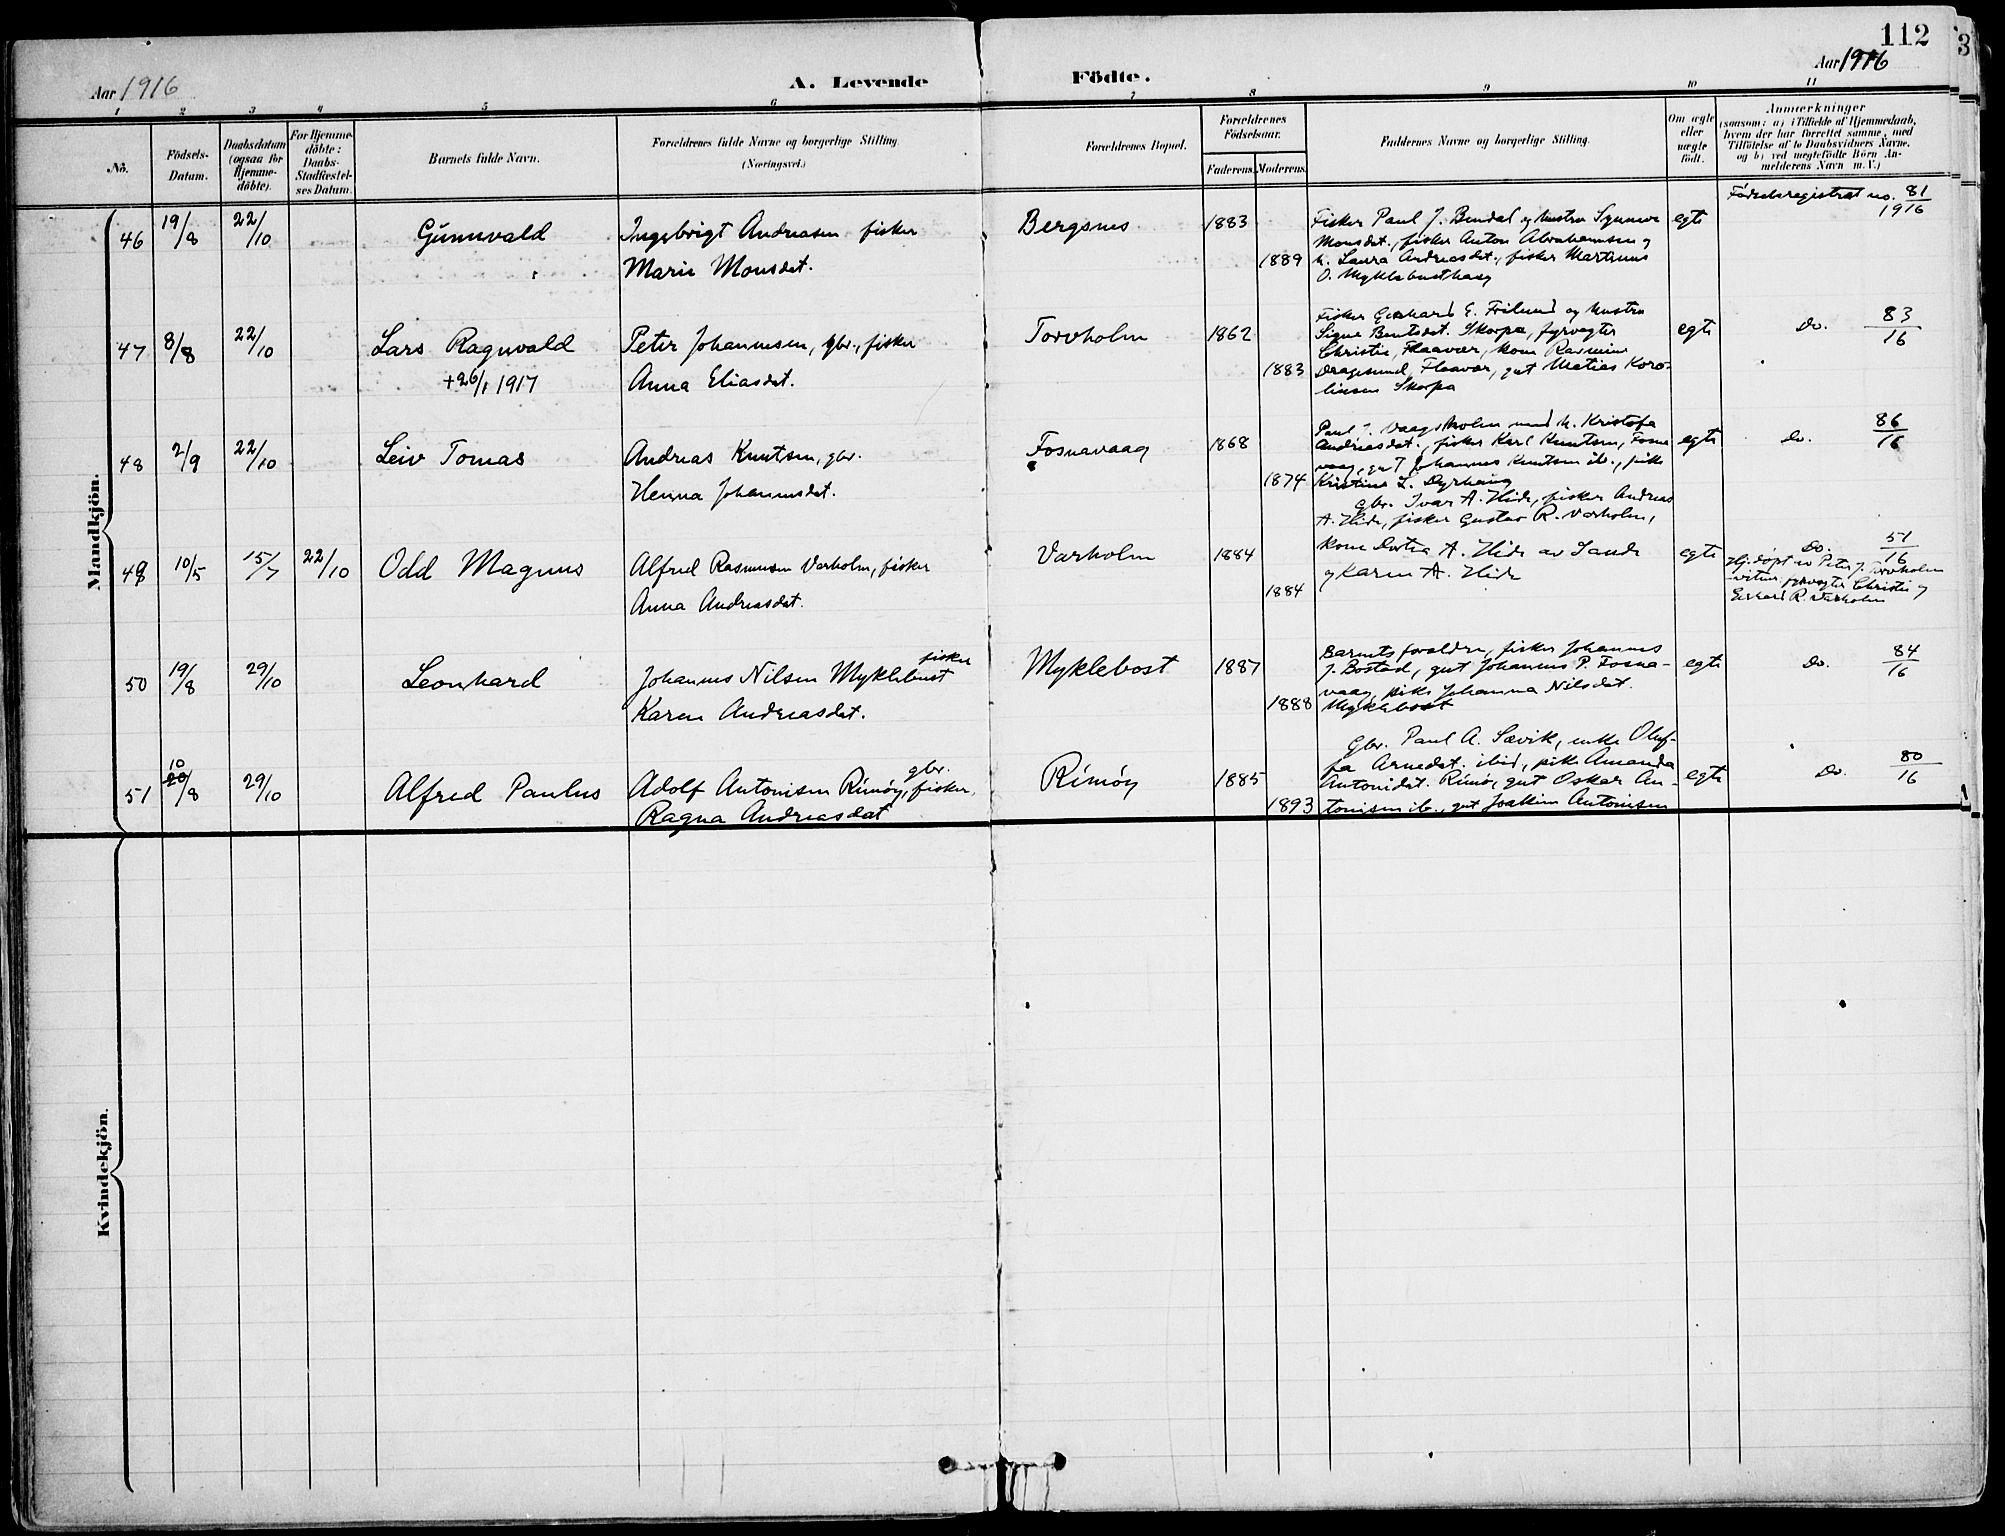 112
3
Aar 1916
A. Levende
Födte.
Aar 1916
1 2 3 4 5 6 7 8 9 10 11
No.
Födsels-Datum.
Daabsdatum (ogsaa for Hjemme-döbte).
For Hjemme-döbte: Daabs-Stadfæstel-ses Datum.
Barnets fulde Navn.
Forældrenes fulde Navne og borgerlige Stilling
(Næringsvei.)
Forældrenes Bopæl.
Forældrenes Födselsaar.
Faderens. Moderens.
Faddernes Navne og borgerlige Stilling.
Om ægte eller uægte födt.
Anmærkninger
(saasom: a) i Tilfælde af Hjemmedaab,
hvem der har forrettet samme, med
Tilföielse af to Daabsvidners Navne.
og b) ved uægtefödte Börn An-
melderens Navn m. V.)
Mandkjön.
46 19/8 22/10 Gunnvald
Ingebrigt Andreasen fisker
Marie Monsdat.
Bergsnes 1883 1889
Fisker Paul J. Bendal og hustru Synnøve
Monsdat., fisker Anton Abrahamsen og
h. Laura Andreasdat., fisker Martinus
O. Myklebusthaug
egte
Fødselsregistret no. 81/1916
47 8/8 22/10 Lars Ragnvald
+26/1 1917
Peter Johannesen, gbr., fisker
Anna Eliasdat.
Torvholm 1862 1883
Fisker Gerhard E. Frilund og hustru
Signe Bentsdat. Skorpa, fyrvogter
Christie, Flaavær, kone Rasmine
Dragesund, Flaavær, gut Matias Karo-
liussen Skorpa
egte
Do. 83/16
48 2/9 22/10 Leiv Tomas
Andreas Knutsen, gbr.
Henna Johannesdat.
Fosnavaag 1868 1874
Paul J. Vaagsholm med h. Kristofa
Andreasdat., fisker Karl Knutsen, Fosna
vaag, gut Johannes Knutsen ib., pike
Kristine L. Dyrhaug
egte
Do. 86/16
49 10/5 15/7 22/10 Odd Magnus
Alfred Rasmusen Varholm, fisker
Anna Andreasdat.
Varholm 1884 1884
Gbr. Ivar A. Hide, fisker Andreas
A. Hide, fisker Gustav R. Varholm,
kone Dortea A. Hide av Sande
og Karen A. Hide
egte
Do. 51/16
Hj. døpt av Peter J. Torvholm
vitner fyrvogter Christie og
Gerhard R. Varholm
50 19/8 29/10 Leonhard
Johannes Nilsen Myklebust fisker
Karen Andreasdat.
Myklebost 1887 1888
Barnets foraldre, fisker Johannes
J. Bostad, gut Johannes P. Fosna-
vaag, pike Johanna Nilsdat.
Myklebost
egte
Do. 84/16
51 20 10/8 29/10 Alfred Paulus
Adolf Antonisen Rimøy, gbr. fisker.
Ragna Andreasdat
Rimøy 1885 1893
Gbr. Paul A. Sævik, enke Oluf-
fa Arnedat. ibid, pike Amanda
Antonidat. Rimø, gut Oskar An-
tonisen ib., gut Joakim Antonisen
egte
Do. 80/16
Kvindekjön.